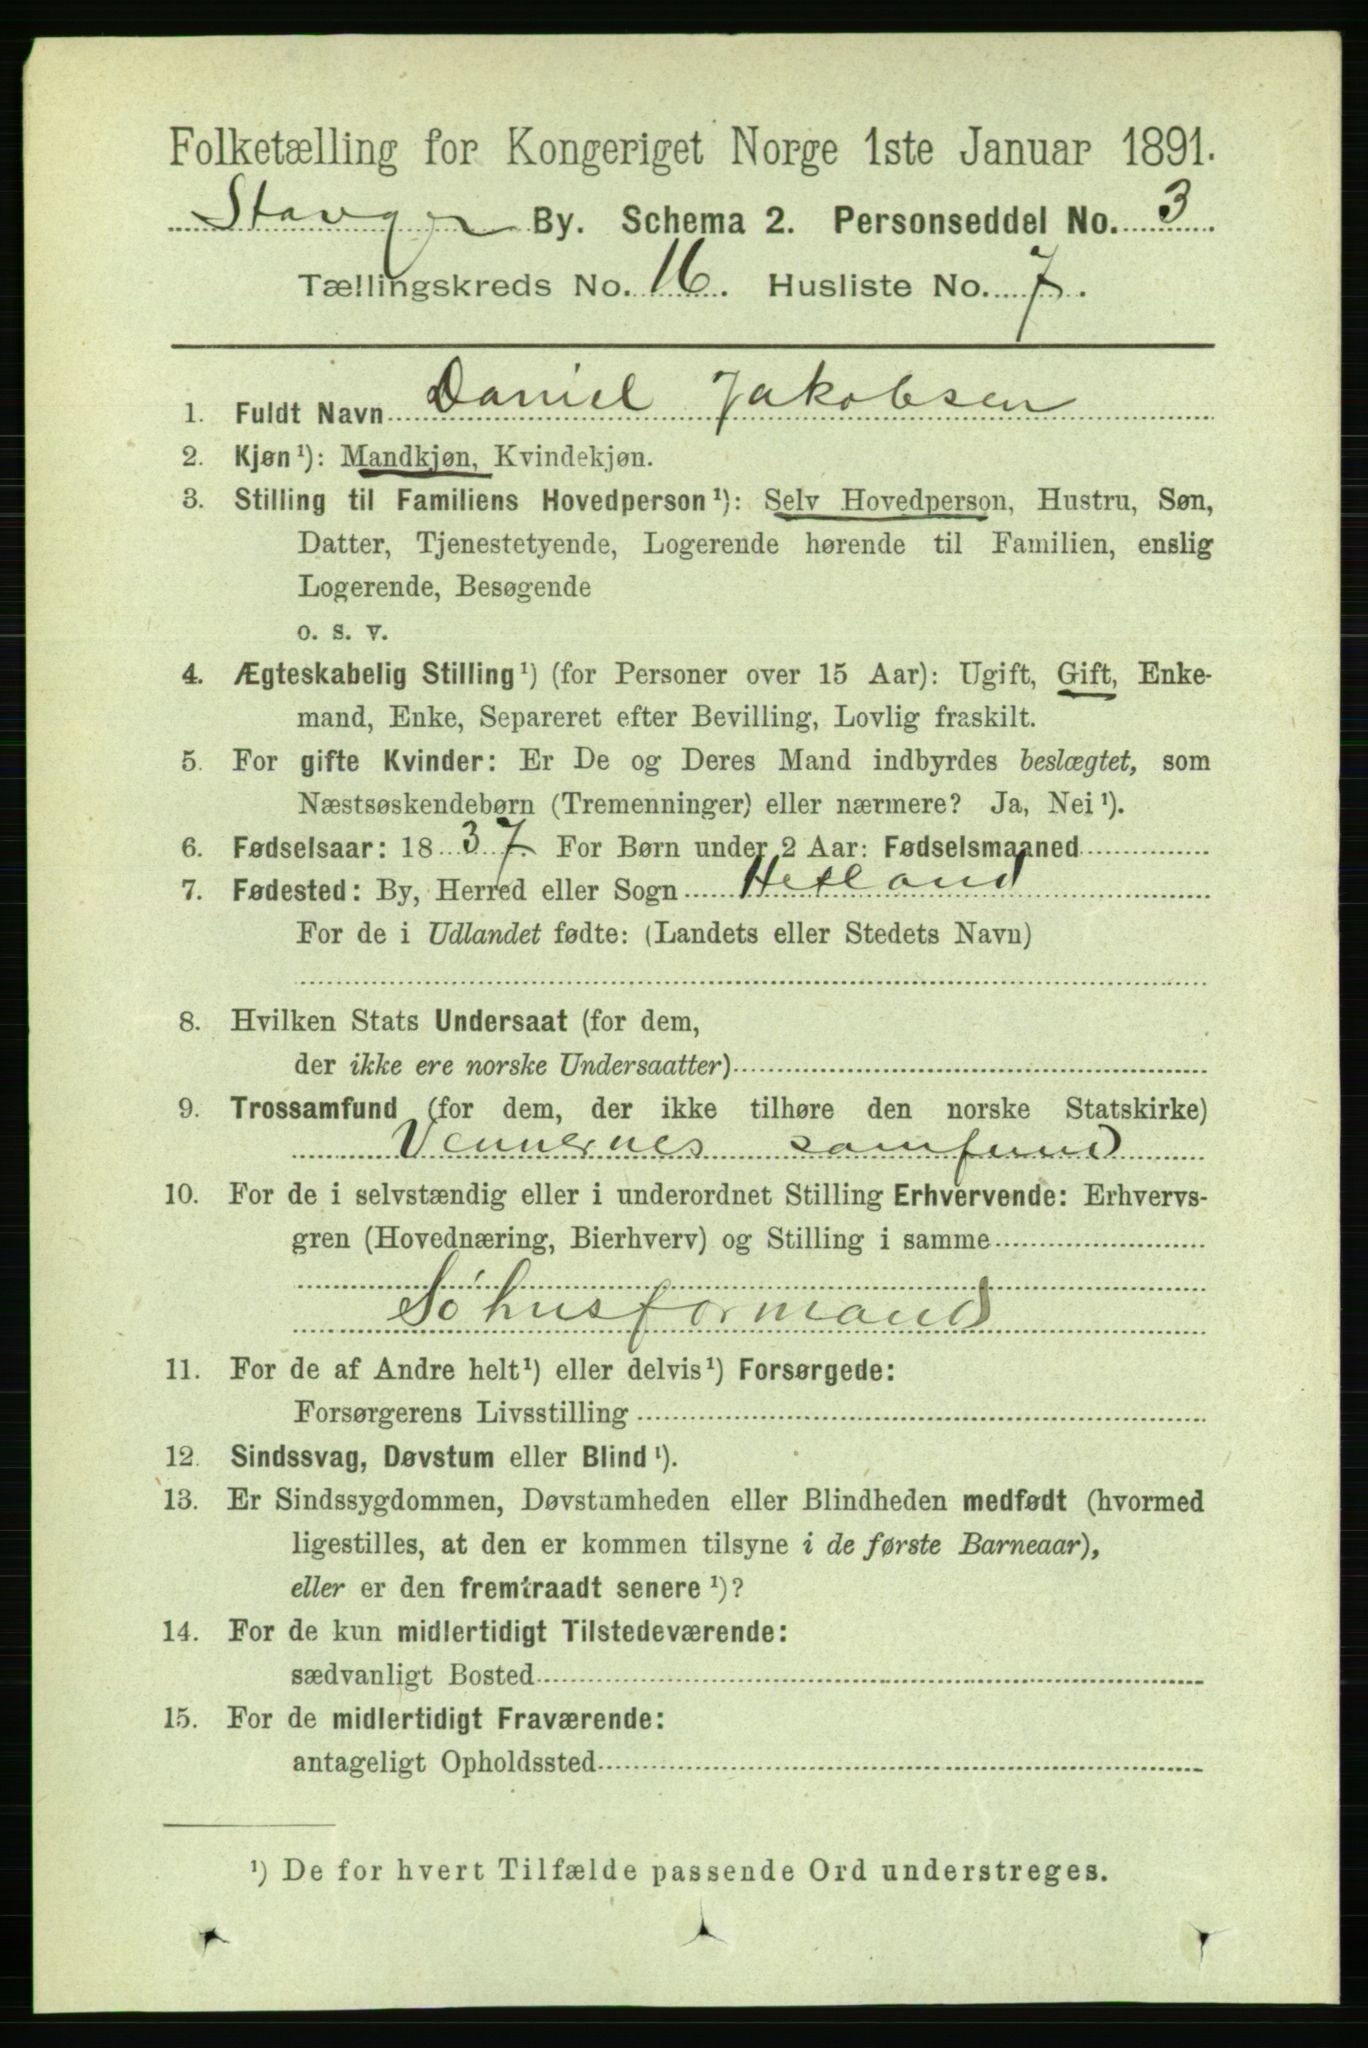 Folketælling for Kongeriget Norge 1ste Januar 1891.
Stavger By. Schema 2. Personseddel No. 3.
Tællingskreds No. 16. Husliste No. 7.
1. Fuldt Navn Daniel Jakobsen
2. Kjøn¹): Mandkjøn, Kvindekjøn.
3. Stilling til Familiens Hovedperson¹): Selv Hovedperson, Hustru, Søn,
Datter, Tjenestetyende, Logerende hørende til Familien, enslig
Logerende, Besøgende
o. s. v.
4. Ægteskabelig Stilling¹) (for Personer over 15 Aar): Ugift, Gift, Enke-
mand, Enke, Separeret efter Bevilling, Lovlig fraskilt.
5. For gifte Kvinder: Er De og Deres Mand indbyrdes beslægtet, som
Næstsøskendebørn (Tremenninger) eller nærmere? Ja, Nei¹).
6. Fødselsaar: 1837. For Børn under 2 Aar: Fødselsmaaned
7. Fødested: By, Herred eller Sogn Hetland
For de i Udlandet fødte: (Landets eller Stedets Navn)
8. Hvilken Stats Undersaat (for dem,
der ikke ere norske Undersaatter)
9. Trossamfund (for dem, der ikke tilhøre den norske Statskirke)
Vennernes samfund
10. For de i selvstændig eller i underordnet Stilling Erhvervende: Erhvervs-
gren (Hovednæring, Bierhverv) og Stilling i samme
Söhusformand
11. For de af Andre helt¹) eller delvis¹) Forsørgede:
Forsørgerens Livsstilling
12. Sindssvag, Døvstum eller Blind¹).
13. Er Sindssygdommen, Døvstumheden eller Blindheden medfødt (hvormed
ligestilles, at den er kommen tilsyne i de første Barneaar),
eller er den fremtraadt senere¹)?
14. For de kun midlertidigt Tilstedeværende:
sædvanligt Bosted
15. For de midlertidigt Fraværende:
antageligt Opholdssted
¹) De for hvert Tilfælde passende Ord understreges.